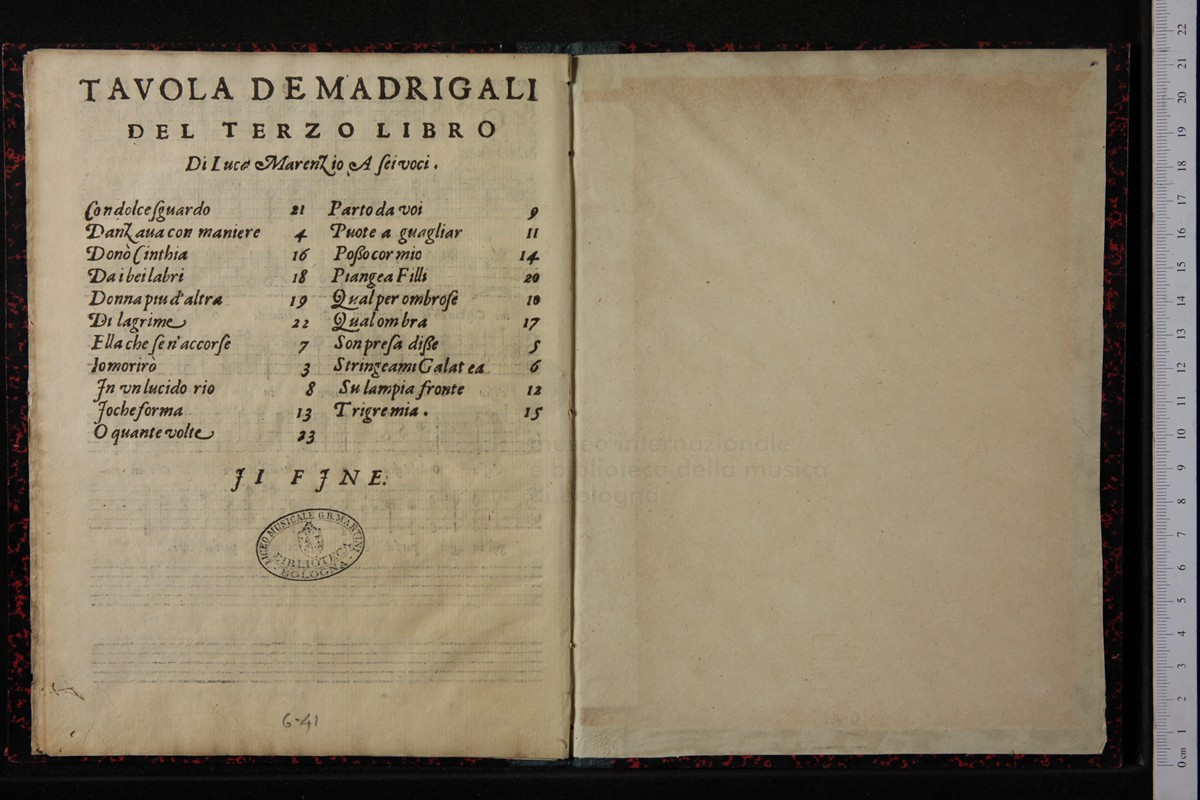 TAVOLA DE MADRIGALI
DEL TERZO LIBRO
Di Luca Marenzio A sei voci.
Con dolce sguardo 21
Danzaua con maniere 4
Donò Cinthia 16
Da i bei labri 18
Donna piu d'altra 19
Di lagrime 22
Ella che se n'accorse 7
Io morirò 3
In vn lucido rio 8
Io che forma 13
O quante volte 23
Parto da voi 9
Puote a guagliar 11
Posso cor mio 14
Piangea Filli 20
Qual per ombrose 10
Qual ombra 17
Son presa disse 5
Stringeami Galatea 6
Su l'ampia fronte 12
Trigre mia. 15
JI FJNE.
LICEO MUSICALE G.B. MARTINI
BIBLIOTECA
BOLOGNA
6-41
museo internazionale
e biblioteca della musica
di bologna
0 cm 1 2 3 4 5 6 7 8 9 10 11 12 13 14 15 16 17 18 19 20 21 22